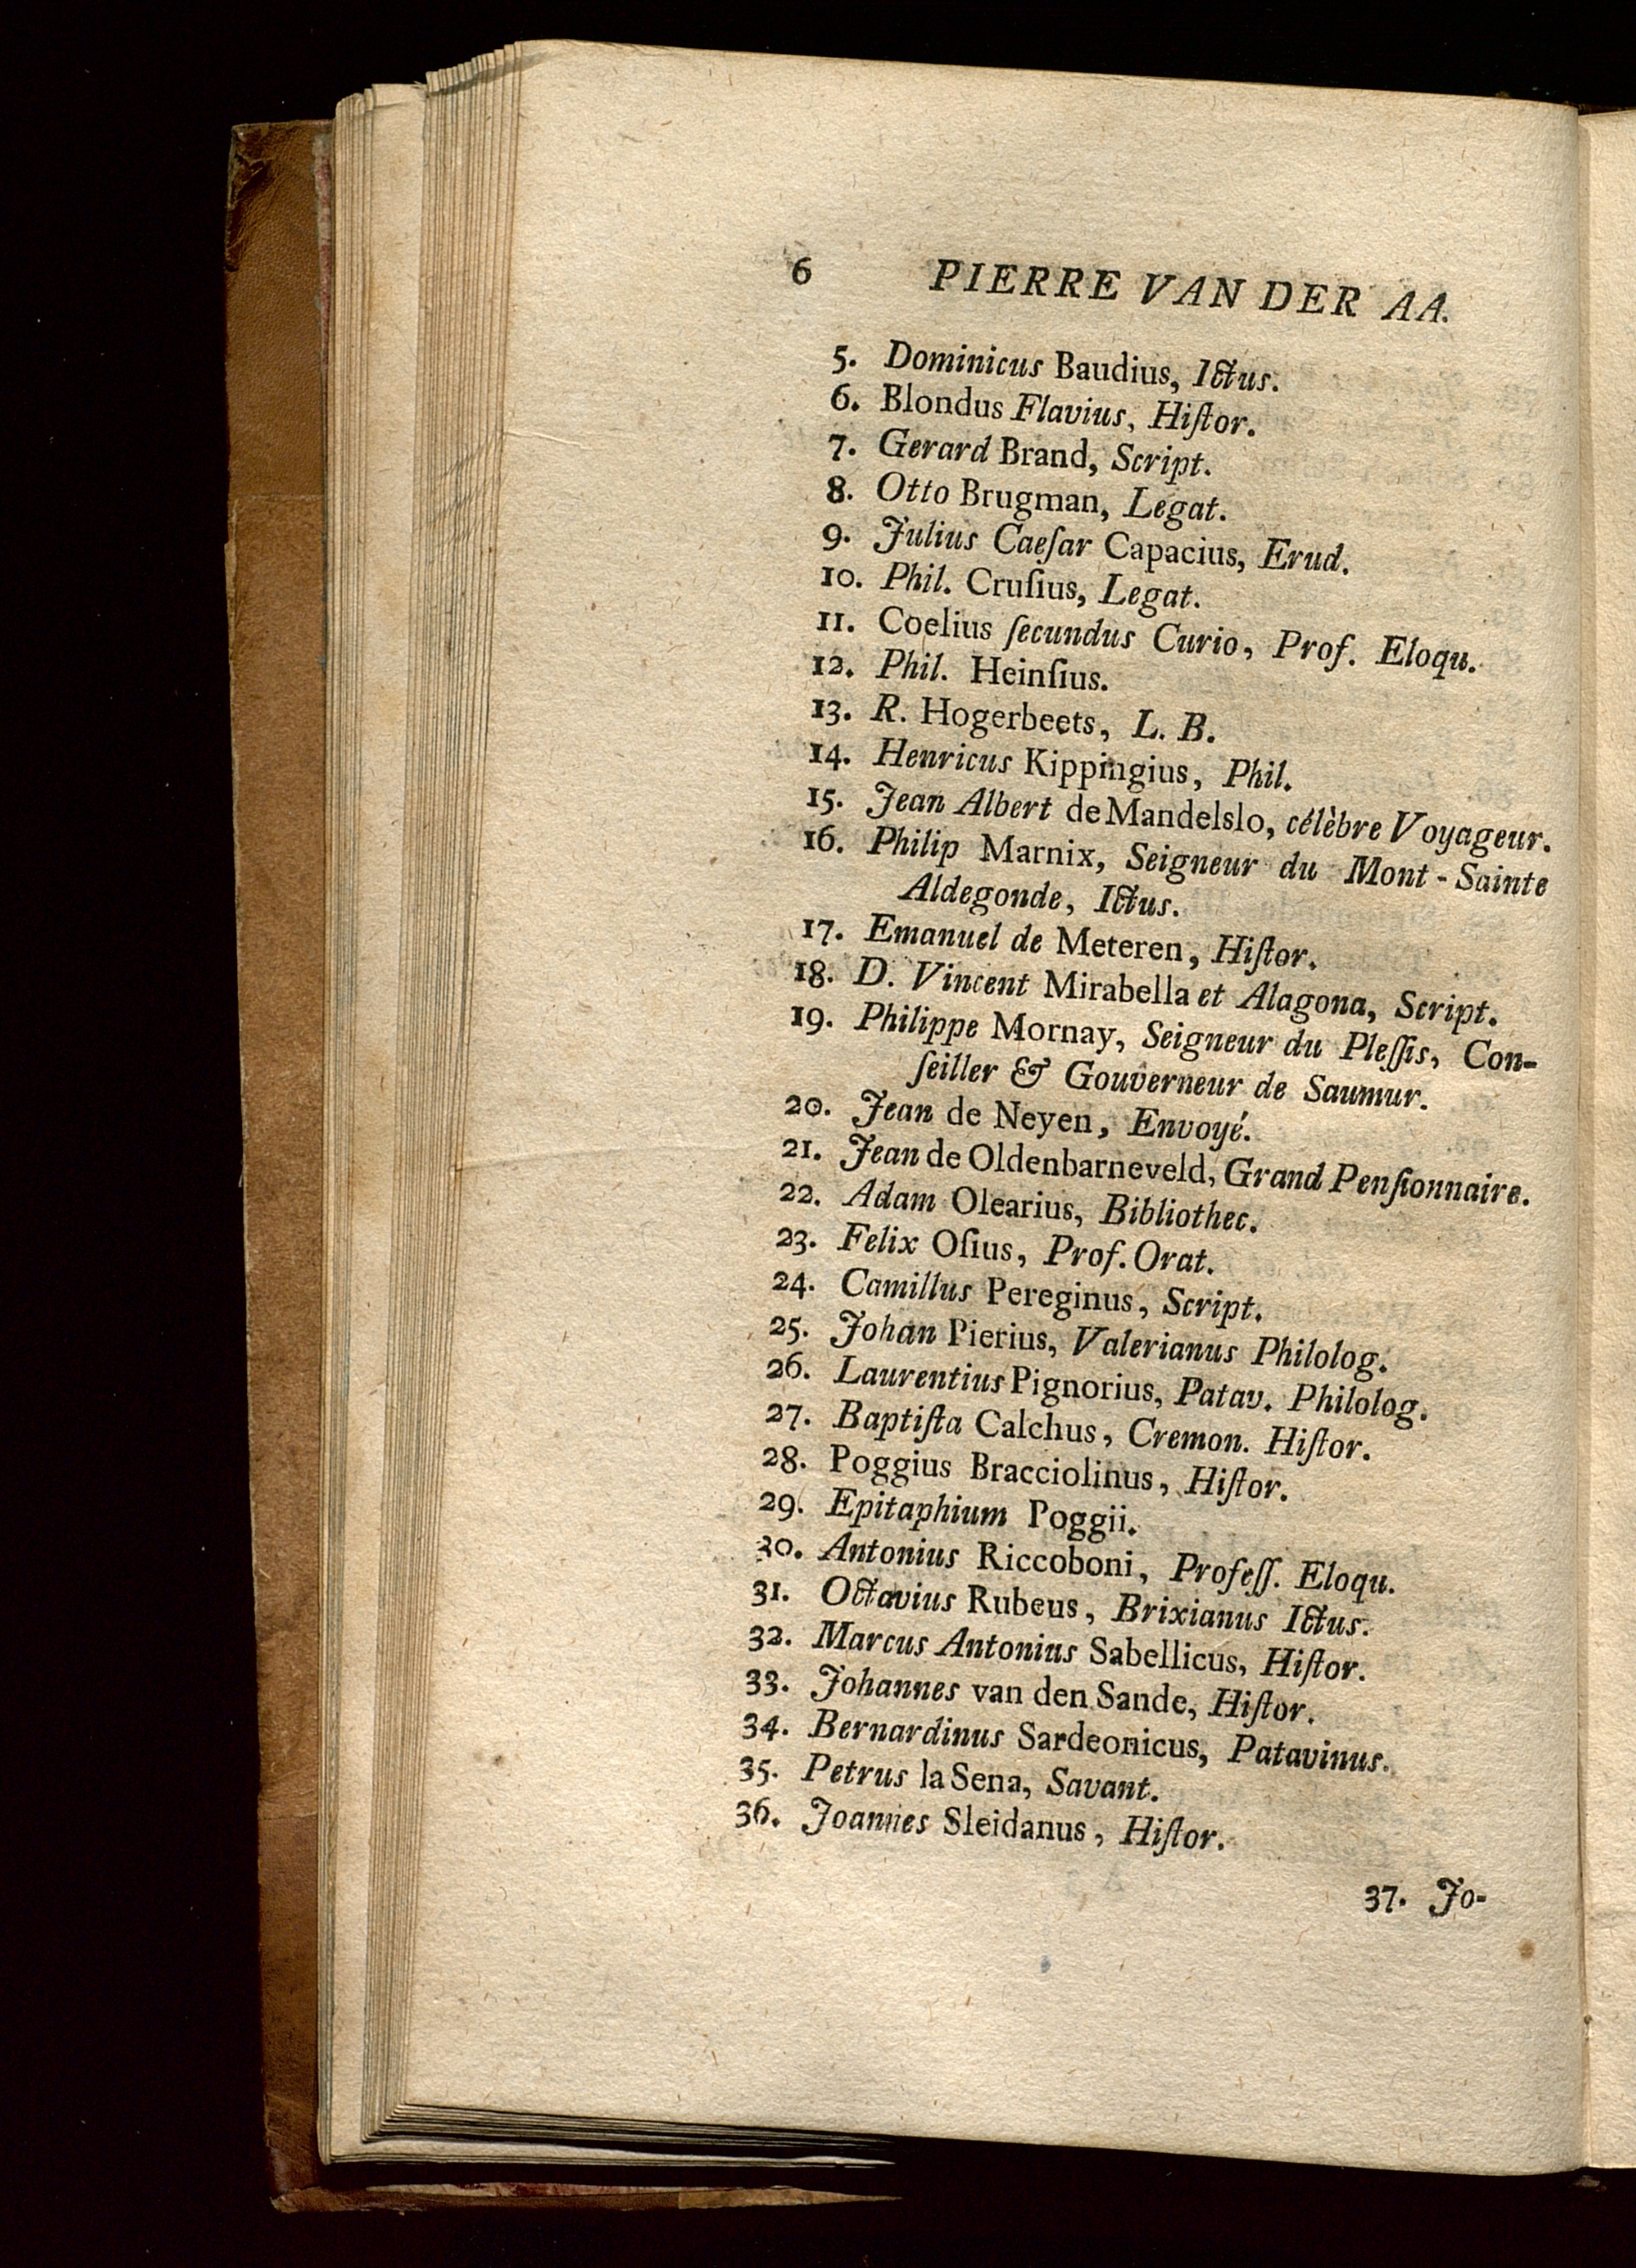 6 PIERRE VAN DER AA.
5. Dominicus Baudius, Ictus.
6. Blondus Flavius, Hiſtor.
7. Gerard Brand, Script.
8. Otto Brugman, Legat.
9. Julius Caeſar Capacius, Erud.
10. Phil. Cruſius, Legat.
11. Coelius ſecundus Curio, Prof. Eloqu.
12. Phil. Heinſius.
13. R. Hogerbeets, L. B.
14. Henricus Kippingius, Phil.
15. Jean Albert de Mandelslo, célèbre Voyageur.
16. Philip Marnix, Seigneur du Mont-Sainte
Aldegonde, Ictus.
17. Emanuel de Meteren, Hiſtor.
18. D. Vincent Mirabella et Alagona, Script.
19. Philippe Mornay, Seigneur du Pleſſis, Con-
ſeiller & Gouverneur de Saumur.
20. Jean de Neyen, Envoyé.
21. Jean de Oldenbarneveld, Grand Penſionnaire.
22. Adam Olearius, Bibliothec.
23. Felix Oſius, Prof. Orat.
24. Camillus Pereginus, Script.
25. Johan Pierius, Valerianus Philolog.
26. Laurentius Pignorius, Patav. Philolog.
27. Baptiſta Calchus, Cremon. Hiſtor.
28. Poggius Bracciolinus, Hiſtor.
29. Epitaphium Poggii.
30. Antonius Riccoboni, Profeſſ. Eloqu.
31. Octavius Rubeus, Brixianus Ictus.
32. Marcus Antonius Sabellicus, Hiſtor.
33. Johannes van den Sande, Hiſtor.
34. Bernardinus Sardeonicus, Patavinus.
35. Petrus la Sena, Savant.
36. Joannes Sleidanus, Hiſtor.
37. Jo-